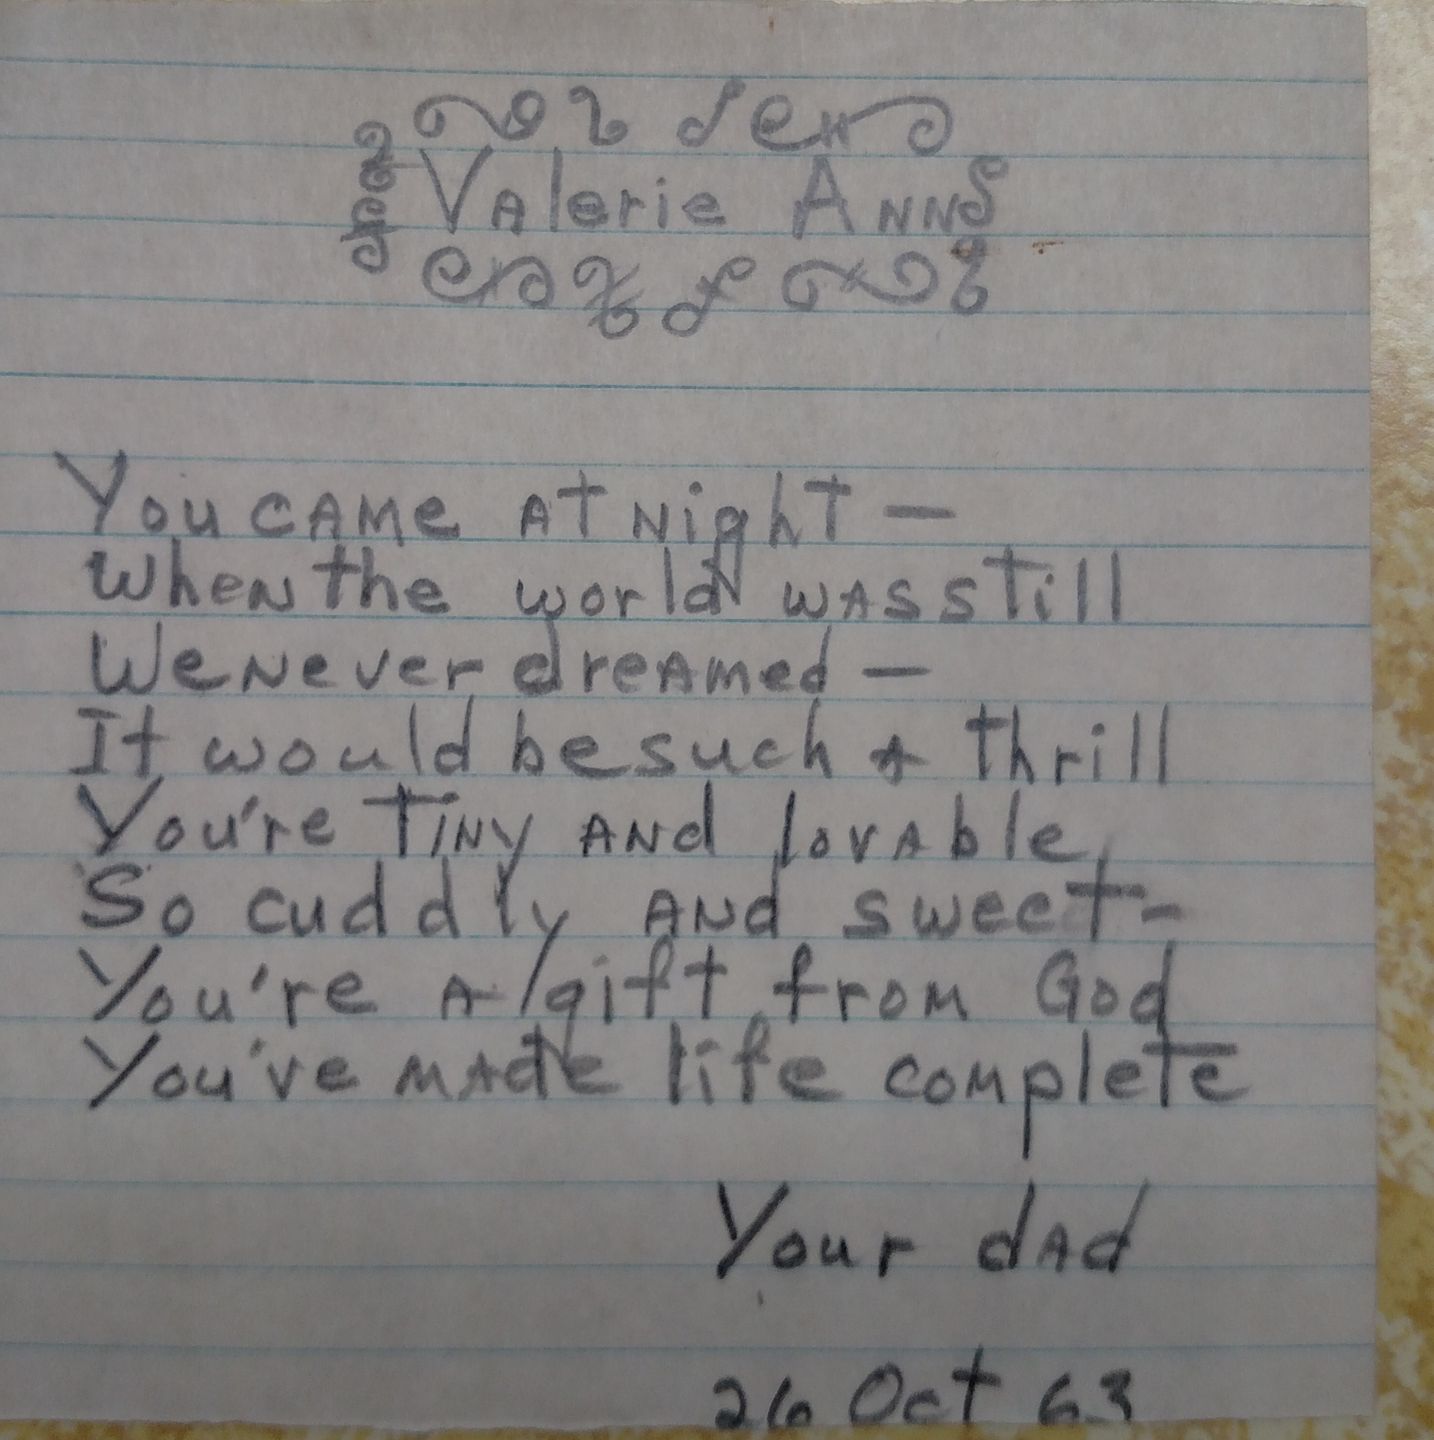 Valerie Ann
You came at night —
When the world was still
We never dreamed —
It would be such a thrill
You're tiny and lovable,
So cuddly and sweet-
You're a gift from God
You've made life complete
Your dad
26 Oct 63